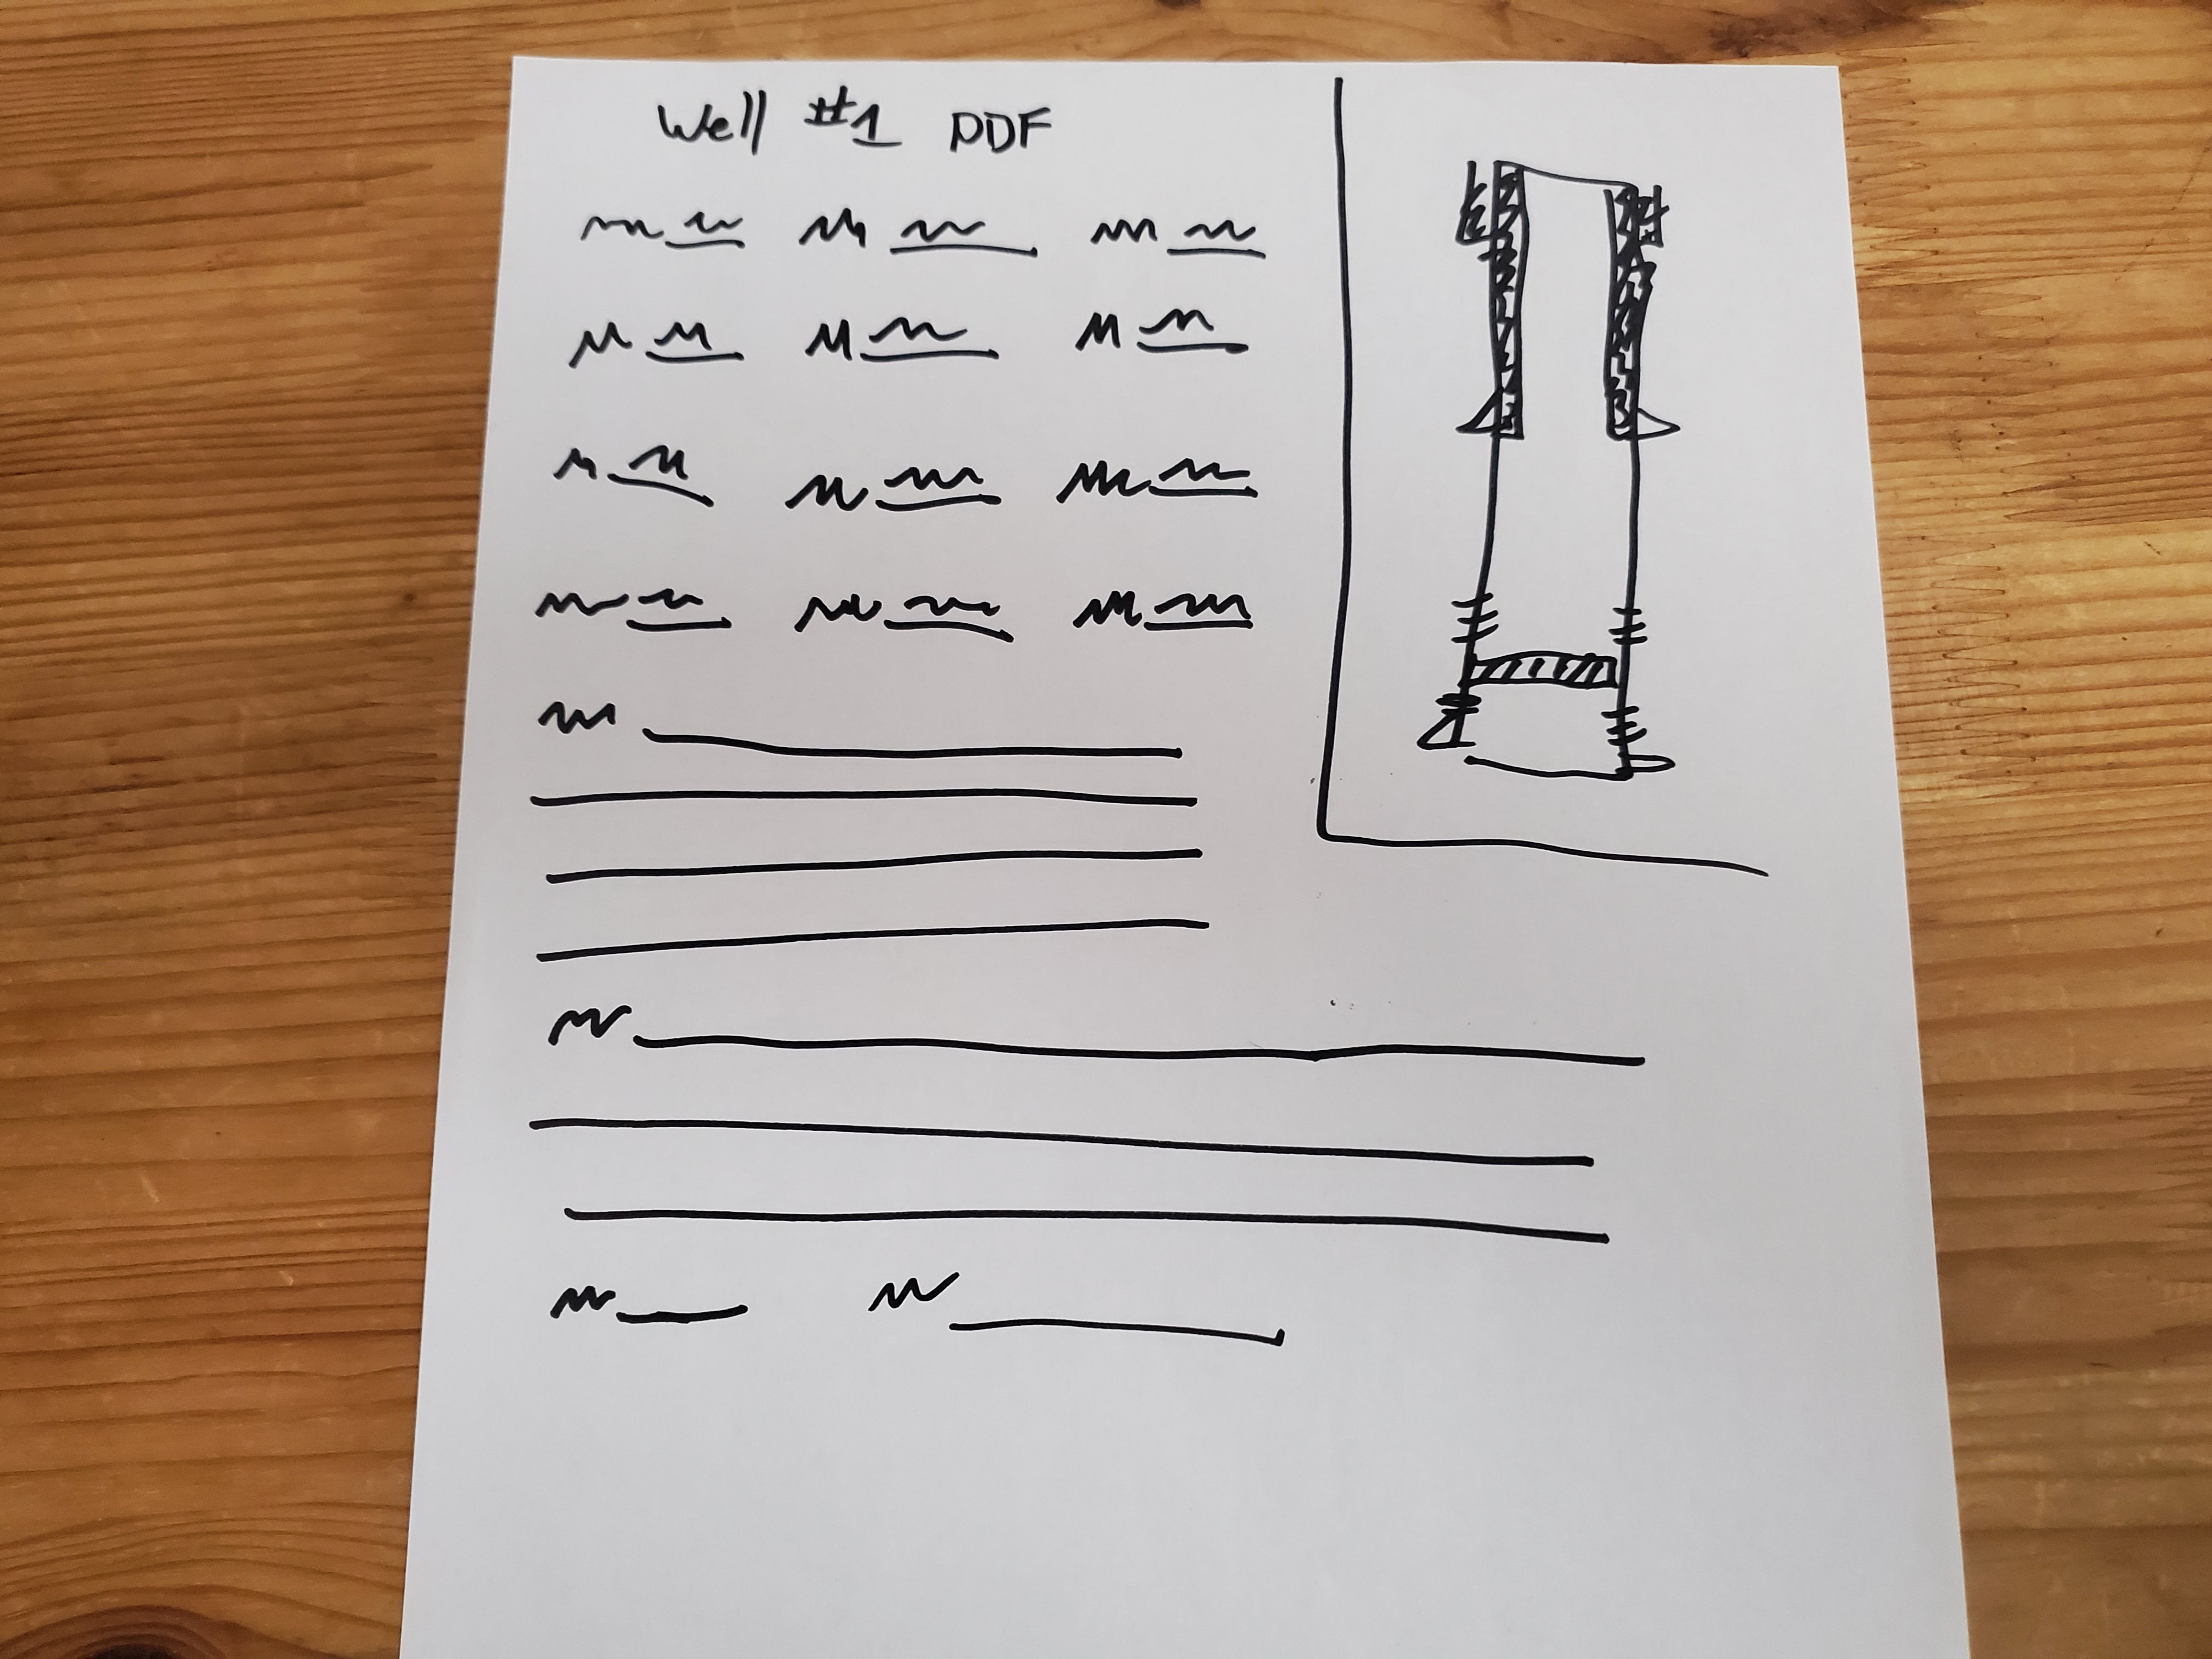 Well #1 PDF